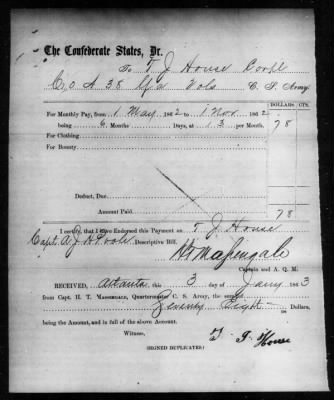 The Confederate States, Dr.
To T J House Corpl
Co A 38 Ga Vols C. S. Army
DOLLARS CTS.
For Monthly Pay, from 1 May 1862 to 1 Nov 1862
being 6 Months Days, at 13 per Month. 78
For Clothing
For Bounty
Deduct, Due
Amount Paid 78
I certify that I have Endorsed this Payment on T J House
Capt. A. J. H Poole Descriptive Bill.
H T Massengale
Captain and A. Q. M.
RECEIVED, Atlanta this 3 day of Jany 1863
from Capt. H. T. MASSENGALE, Quartermaster C. S. Army, the sum of
Seventy Eight Dollars,
being the Amount, and in full of the above Account.
Witness, T. J. House
(SIGNED DUPLICATES.)